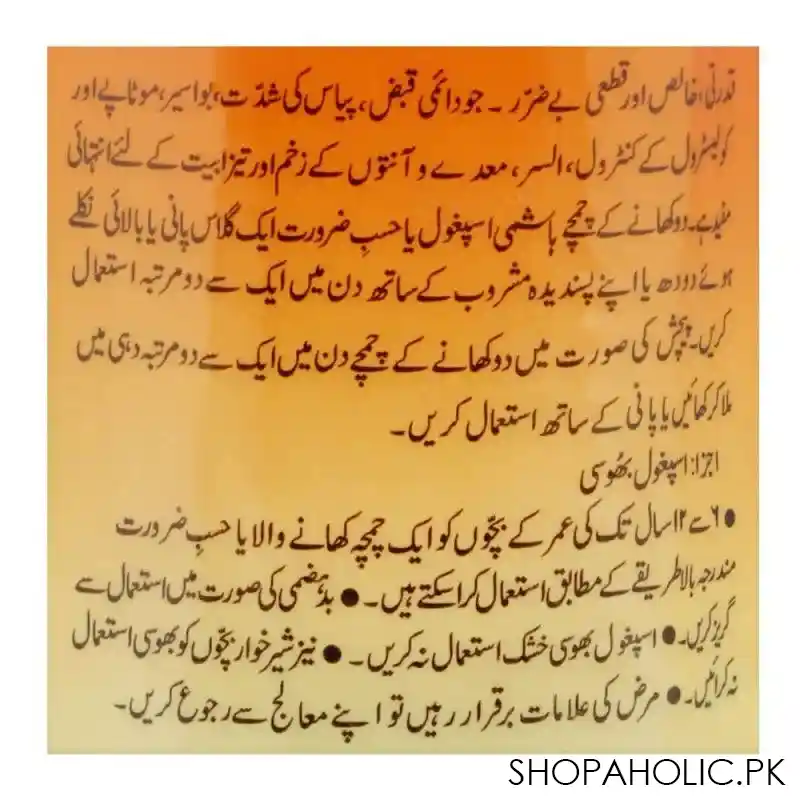 قدرتی، خالص اور قطعی بے ضرّر ۔ جو دائمی قبض، پیاس کی شدّت، بواسیر، موٹاپے اور
کولیسٹرول کے کنٹرول، السر، معدے و آنتوں کے زخم اور تیزابیت کے لئے انتہائی
مفید ہے۔ دو کھانے کے چمچے ہاشمی اسپغول یا حسبِ ضرورت ایک گلاس پانی یا بالائی نکلے
ہوئے دودھ یا اپنے پسندیدہ مشروب کے ساتھ دن میں ایک سے دو مرتبہ استعمال
کریں۔ پیچش کی صورت میں دو کھانے کے چمچے دن میں ایک سے دو مرتبہ دہی میں
ملا کر کھائیں یا پانی کے ساتھ استعمال کریں۔
اجزا: اسپغول بھُوسی
● ۶ سے ۱۲ سال تک کی عمر کے بچّوں کو ایک چمچہ کھانے والا یا حسبِ ضرورت
مندرجہ بالا طریقے کے مطابق استعمال کرا سکتے ہیں۔ ● بدہضمی کی صورت میں استعمال سے
گریز کریں۔ ● اسپغول بھوسی خشک استعمال نہ کریں۔ ● نیز شیر خوار بچّوں کو بھوسی استعمال
نہ کرائیں۔ ● مرض کی علامات برقرار رہیں تو اپنے معالج سے رجوع کریں۔
SHOPAHOLIC.PK